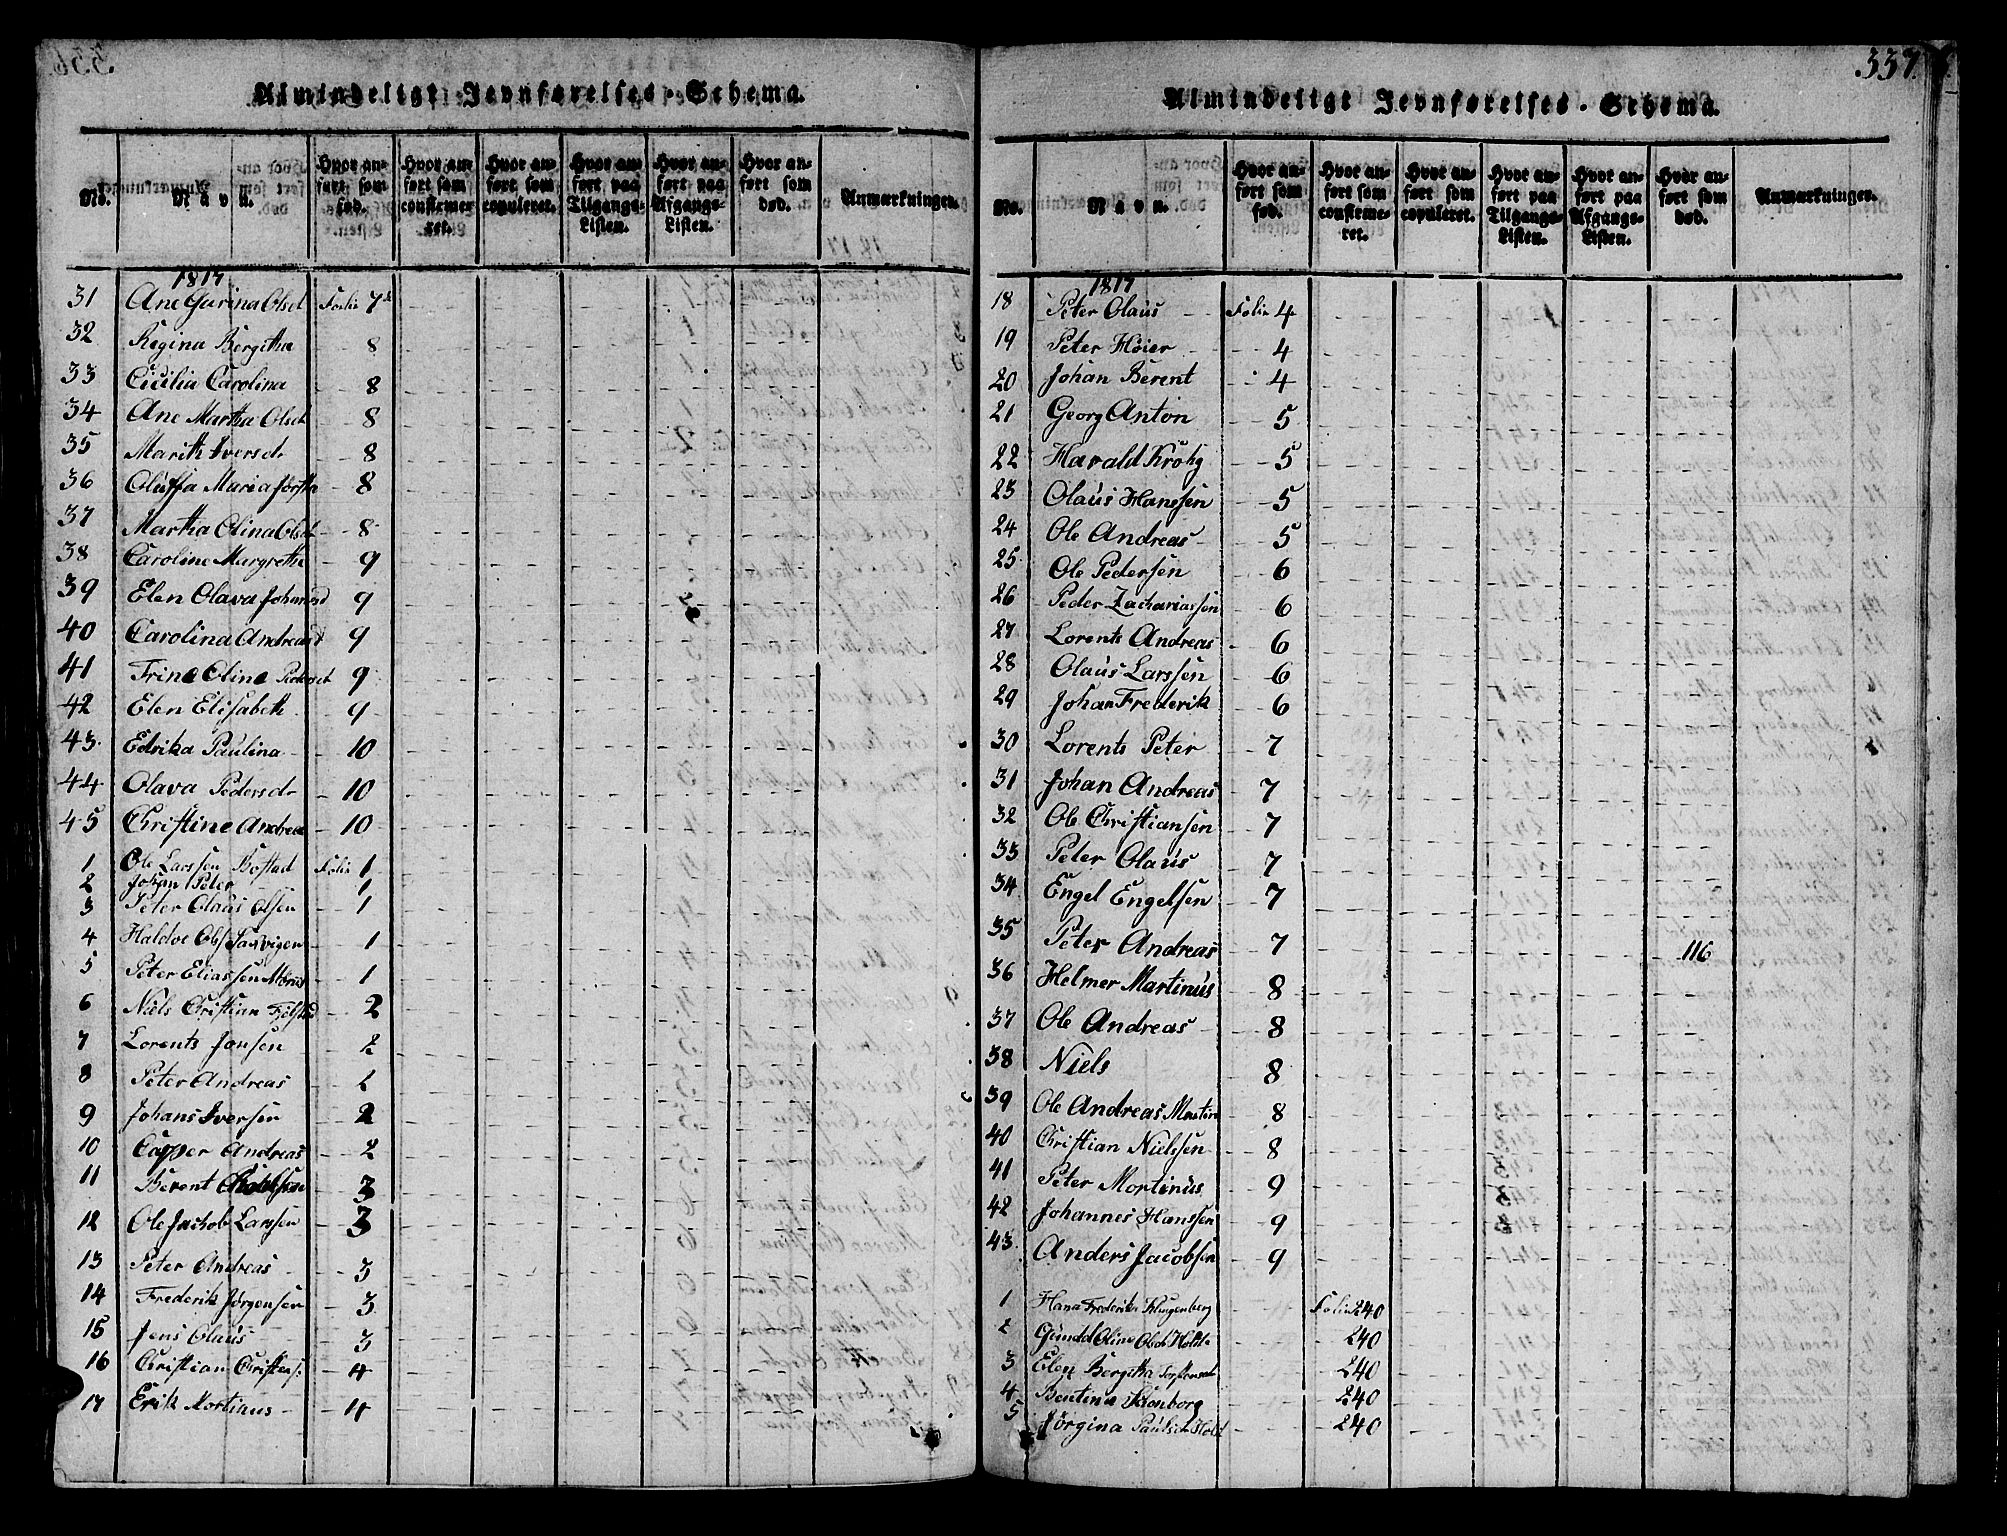 Almindeligt Jevnførelses-Schema.
No. Navn. Hvor anført som fød. Hvor anført som confirmeret. Hvor anført som copuleret. Hvor anført paa Tilgangs-Listen. Hvor anført paa Afgangs-Listen. Hvor anført som død. Anmærkninger.
1817
31 Ane Gurina Olsd Folio 7
32 Regina Bergitha 8
33 Cicilia Carolina 8
34 Ane Martha Olsd 8
35 Marith Iversdr 8
36 Oluffa Maria 8
37 Martha Olina Olsd 8
38 Caroline Margrethe 9
39 Elen Olava 9
40 Carolina Andreasd 9
41 Trine Oline Pedersd 9
42 Elen Elisabeth 9
43. Edrika Paulina 10
44 Olava Pedersdr 10
45 Christine Andrea 10
1 Ole Larssen Bostad Folio 1
2 Johan Peter 1
3 Peter Olaus Olsen 1
4 Haldoe Ols 1
5 Peter Eliassen 1
6 Niels Christian 2
7 Lorents Jonsen 2
8 Peter Andreas 2
9 Johans Iversen 2
10 Casper Andreas 2
11 Berent 3
12 Ole Jachob Larssen 3
13 Peter Andreas 3
14 Frederik Jørgensen 3
15 Jens Olaus 3
16 Christian Christens: 4
17 Erik Mortinus 4
337.
Almindeligt Jevnførelses-Schema.
No. Navn. Hvor anført som fød. Hvor anført som confirmeret. Hvor anført som copuleret. Hvor anført paa Tilgangs-Listen. Hvor anført paa Afgangs-Listen. Hvor anført som død. Anmærkninger.
1817
18 Peter Olaus Folio 4
19 Peter Høier 4
20 Johan Berent 4
21 Georg Anton 5
22 Harald Krohg 5
23 Olaus Hanssen 5
24 Ole Andreas 5
25 Ole Pedersen 6
26 Peder Zachariassen 6
27 Lorents Andreas 6
28 Olaus Larssen 6
29 Johan Frederik 6
30 Lorents Peter 7
31 Johan Andreas 7
32 Ole Christiansen 7
33 Peter Olaus 7
34 Engel Engelsen 7
35 Peter Andreas 7 116
36 Helmer Martinus 8
37 Ole Andreas 8
38 Niels 8
39 Ole Andreas Martin 8
40 Christian Nielssen 8
41 Peter Mortinus 9
42 Johannes Hanssen 9
43. Anders Jacobsen 9
1 Hana Frederika Klingenberg Folio 240
2 Oline Olsdr 240
3 Elen Bergitha 240
4 240
5 Jørgina 240